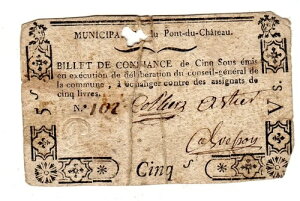 MUNICIPA du Pont-du-Château.
BILLET DE CONFIANCE de Cinq Sous émis
en exécution de délibération du conseil-général de
la commune, à échanger contre des assignats de
cinq livres.
N.° 102
Cinq S